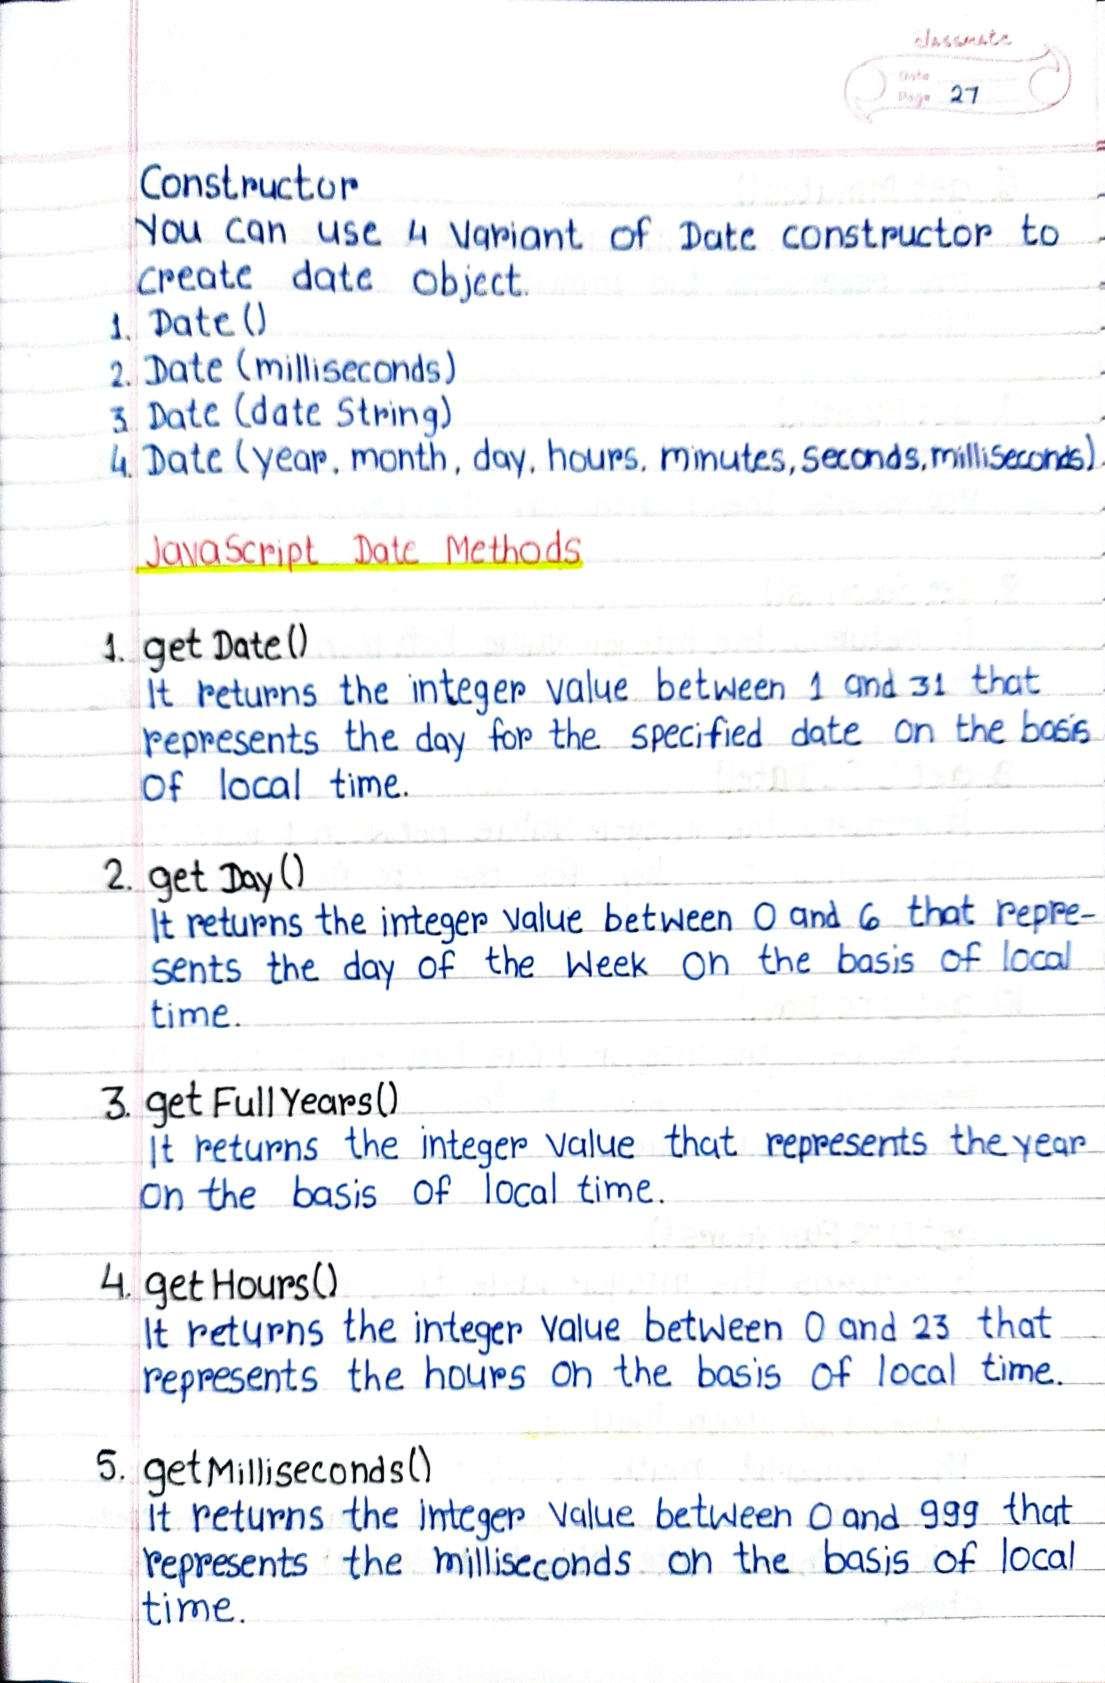 classmate
Date
Page 27
Constructor
You can use 4 Variant of Date constructor to
create date object.
1. Date ()
2. Date (milliseconds)
3. Date (date String)
4. Date (year, month, day, hours, minutes, seconds, milliseconds).
JavaScript Date Methods
1. get Date ()
It returns the integer value between 1 and 31 that
represents the day for the specified date on the basis
of local time.
2. get Day ()
It returns the integer value between 0 and 6 that repre-
sents the day of the Week on the basis of local
time.
3. get FullYears()
It returns the integer value that represents the year
on the basis of local time.
4. get Hours()
It returns the integer value between 0 and 23 that
represents the hours on the basis of local time.
5. getMilliseconds()
It returns the integer value between 0 and 999 that
represents the milliseconds on the basis of local
time.